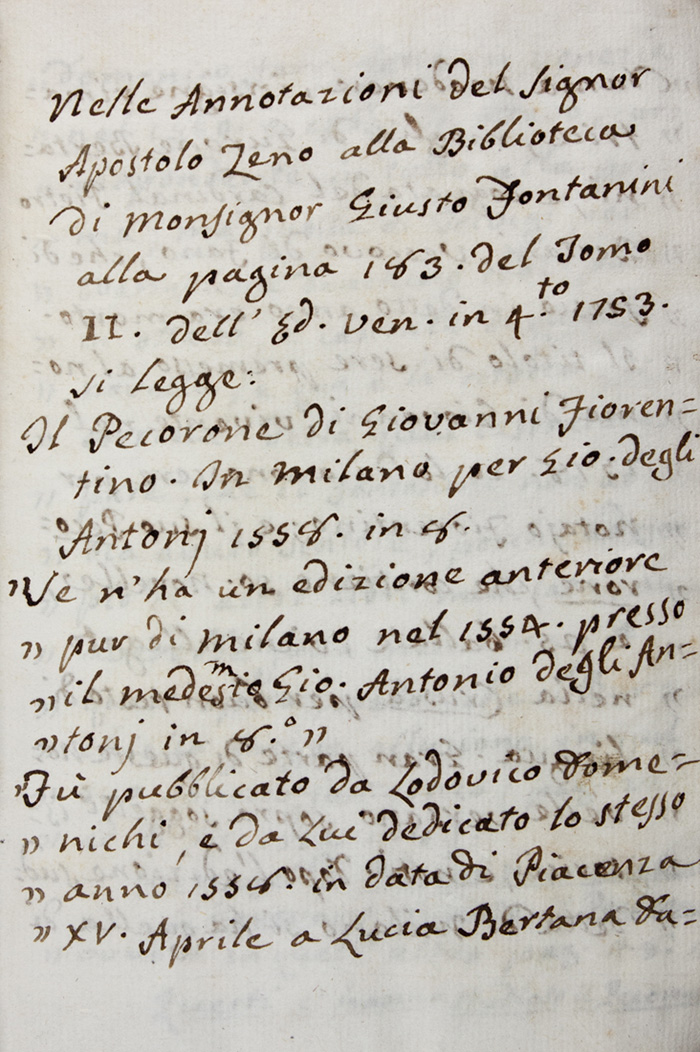 Nelle Annotazioni del Signor
Apostolo Zeno alla Biblioteca
di Monsignor Giusto Fontanini
alla pagina 183. del Tomo
II. dell' Ed. Ven. in 4.to 1753.
si legge:
Il Pecorone di Giovanni Fioren=
tino. In Milano per Gio. degli
Antonj 1558. in 8.o
"Ve n'ha un edizione anteriore
" pur di Milano nel 1554. presso
" il medesmo Gio. Antonio degli An=
" tonj in 8.o "
"Fù pubblicato da Lodovico Dome=
" nichi, e da Lui dedicato lo stesso
" anno 1558. in data di Piacenza
" XV. Aprile a Lucia Bertana Da=